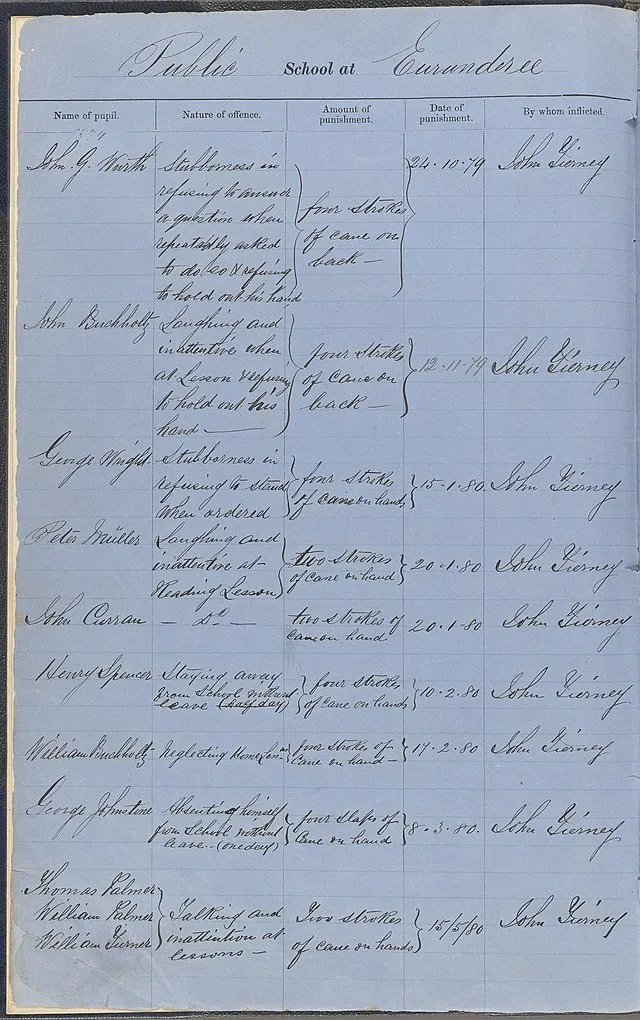 Public School at Eurunderee
Name of pupil. Nature of offence. Amount of punishment. Date of punishment. By whom inflicted.
John. G. Wurth Stubborness in 24. 10. 79 John Tierney
refusing to answer
a question when four strokes
repeatedly asked of cane on
to do so & refusing back —
to hold out his hand
John Buchholtz Laughing and
inattentive when four strokes 12. 11. 79 John Tierney
at Lesson & refusing of cane on
to hold out his back —
hand —
George Wright Stubborness in four strokes 15. 1. 80. John Tierney
refusing to stand of cane on hands
when ordered
Peter Müller Laughing and
inattentive at two strokes 20. 1. 80 John Tierney
Reading Lesson of cane on hand
John Curran — Do — two strokes of 20. 1. 80 John Tierney
cane on hand
Henry Spencer Staying away four strokes 10. 2. 80 John Tierney
from School without of cane on hands
leave (half day)
William Buchholtz Neglecting Home four strokes of 17. 2. 80 John Tierney
cane on hand —
George Johnstone Absenting himself four slaps of 8. 3. 80. John Tierney
from School without cane on hand
leave. — (one day)
Thomas Palmer
William Palmer Talking and Two strokes 15/5/80 John Tierney
William Turner inattintion at of cane on hands
lessons —